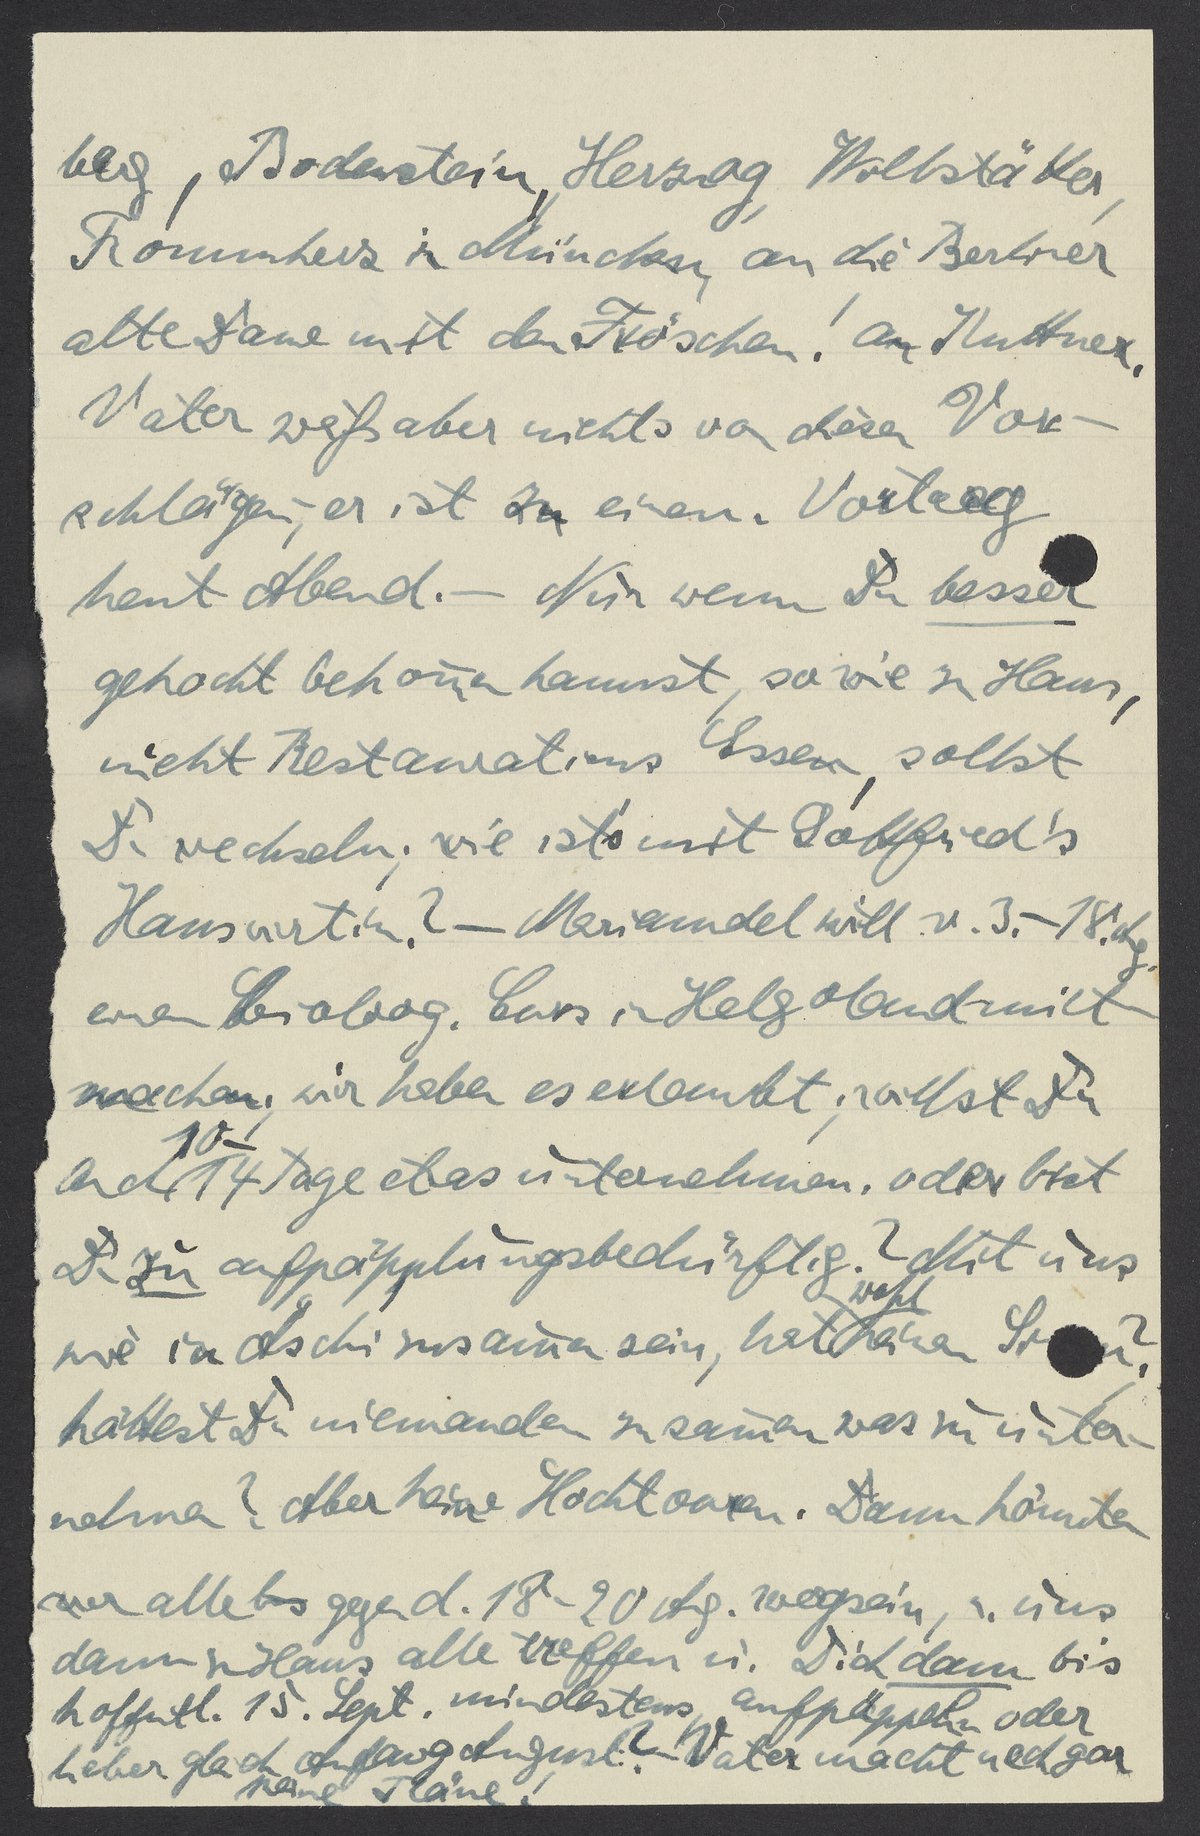 berg, Bodenstein, Herzog, Wollstätter,
Frommherz in München, an die Berliner
alte Dame mit den Fröschen! an Kuttner.
Vater weiß aber nichts von diesen Vor-
schlägen, er ist zu einem Vortrag
heut Abend. – Nur wenn Du besser
gekocht bekom̄en kannst, so wie zu Haus,
nicht Restaurations Essen, sollst
Du wechseln; wie ist's mit Gottfried's
Hauswirtin? – Mariandel will v. 3.–18. Aug.
einen biolog. Curs in Helgoland mit-
machen; wir haben es erlaubt; willst Du
auch 10–14 Tage etwas unternehmen, oder bist
Du zu aufpäpplungsbedürftig? Mit uns
wie in Aschi zusam̄en sein, hat wohl keinen Sinn?
hättest Du niemanden zusam̄en was zu unter-
nehmen? Aber keine Hochtouren. Dann könnten
wir alle bis gegen d. 18–20 Aug. wegsein, u. uns
dann zu Haus alle treffen u. Dich dann bis
hoffntl. 15. Sept. mindestens aufpäppeln oder
lieber gleich Anfang August? – Vater macht noch gar
keine Pläne!